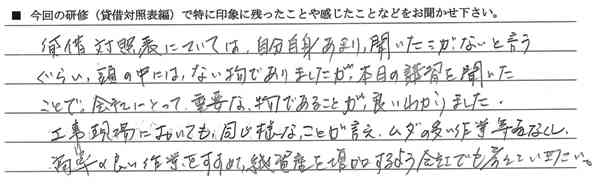 ■ 今回の研修（貸借対照表編）で特に印象に残ったことや感じたことなどをお聞かせ下さい。
貸借対照表については、自分自身あまり、聞いたことがないと言う
ぐらい、頭の中には、ない物でありましたが、本日の講習を聞いた
ことで、会社にとって、重要な、物であることが、良いわかりました。
工事現場においても、同じ様なことが言え、ムダの多い作業等をなくし、
効率の良い作業をすすめ、総資産を増加するよう会社でも考えていきたい。